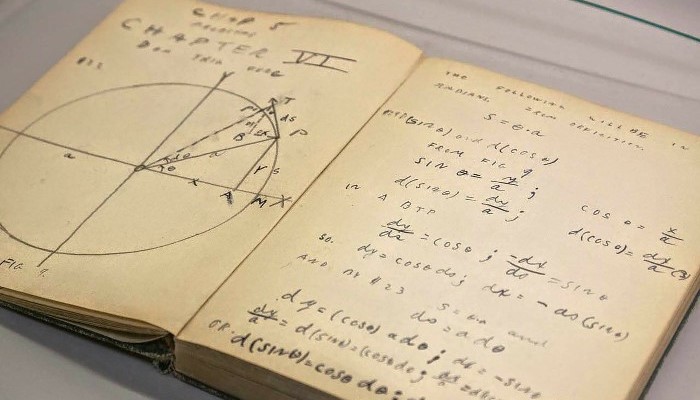 CHAP 5
CHAPTER VI
T
P
ds
P
B
a
a
dθ
θ
Y
S
X
A
M
X
FIG 9.
THE FOLLOWING WILL BE IN
RADIANS FROM DEFINITION.
S = θ·a
d(sin θ) and d(cos θ)
FROM FIG 9
SIN θ = y/a ; COS θ = x/a
d(sin θ) = dy/a ; d(cos θ) = dx/a
IN A BTP
dy/ds = cos θ ; -dx/ds = SIN θ
SO. dy = cos θ ds ; dx = - ds (sin θ)
AND BY #23 S = θ·a and
ds = a dθ
dy = (cos θ) a dθ ; dx = -sin θ
dy/a = d(sin θ) = (cos θ) dθ ;
OR. d(sin θ) = cos θ dθ ;